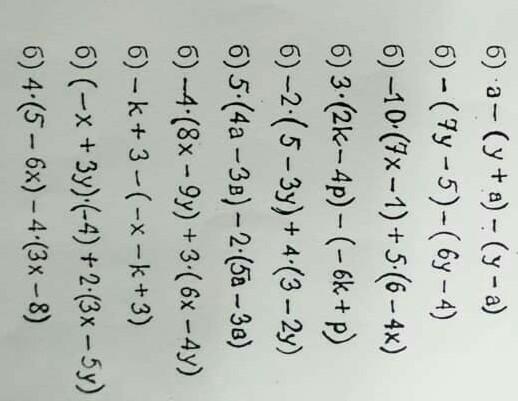 б) a − (y + a) − (y − a)
б) − (7y − 5) − (6y − 4)
б) −10·(7x − 1) + 5·(6 − 4x)
б) 3·(2k − 4p) − (−6k + p)
б) −2·(5 − 3y) + 4·(3 − 2y)
б) 5·(4a − 3в) − 2·(5a − 3в)
б) −4·(8x − 9y) + 3·(6x − 4y)
б) − k + 3 − (−x − k + 3)
б) (−x + 3y)·(−4) + 2·(3x − 5y)
б) 4·(5 − 6x) − 4·(3x − 8)